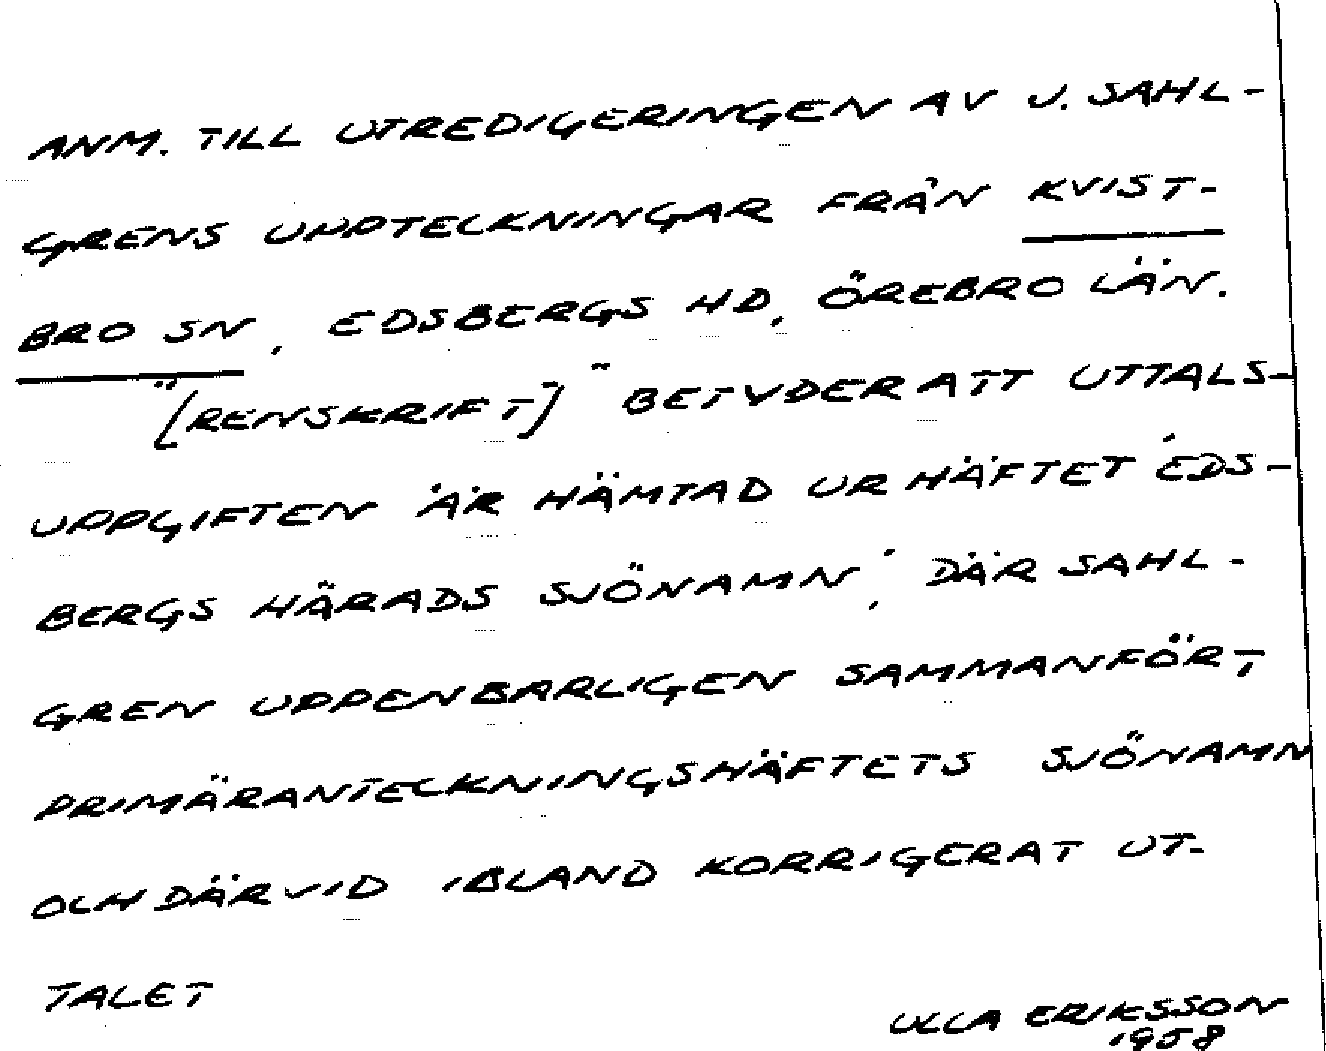 ANM. TILL UTREDIGERINGEN AV J. SAHL-
GRENS UPPTECKNINGAR FRÅN KVIST-
BRO SN, EDSBERGS HD, ÖREBRO LÄN.
"[RENSKRIFT]" BETYDER ATT UTTALS-
UPPGIFTEN ÄR HÄMTAD UR HÄFTET 'EDS-
BERGS HÄRADS SJÖNAMN', DÄR SAHL-
GREN UPPENBARLIGEN SAMMANFÖRT
PRIMÄRANTECKNINGSHÄFTETS SJÖNAMN
OCH DÄRVID IBLAND KORRIGERAT UT-
TALET
ULLA ERIKSSON
1958